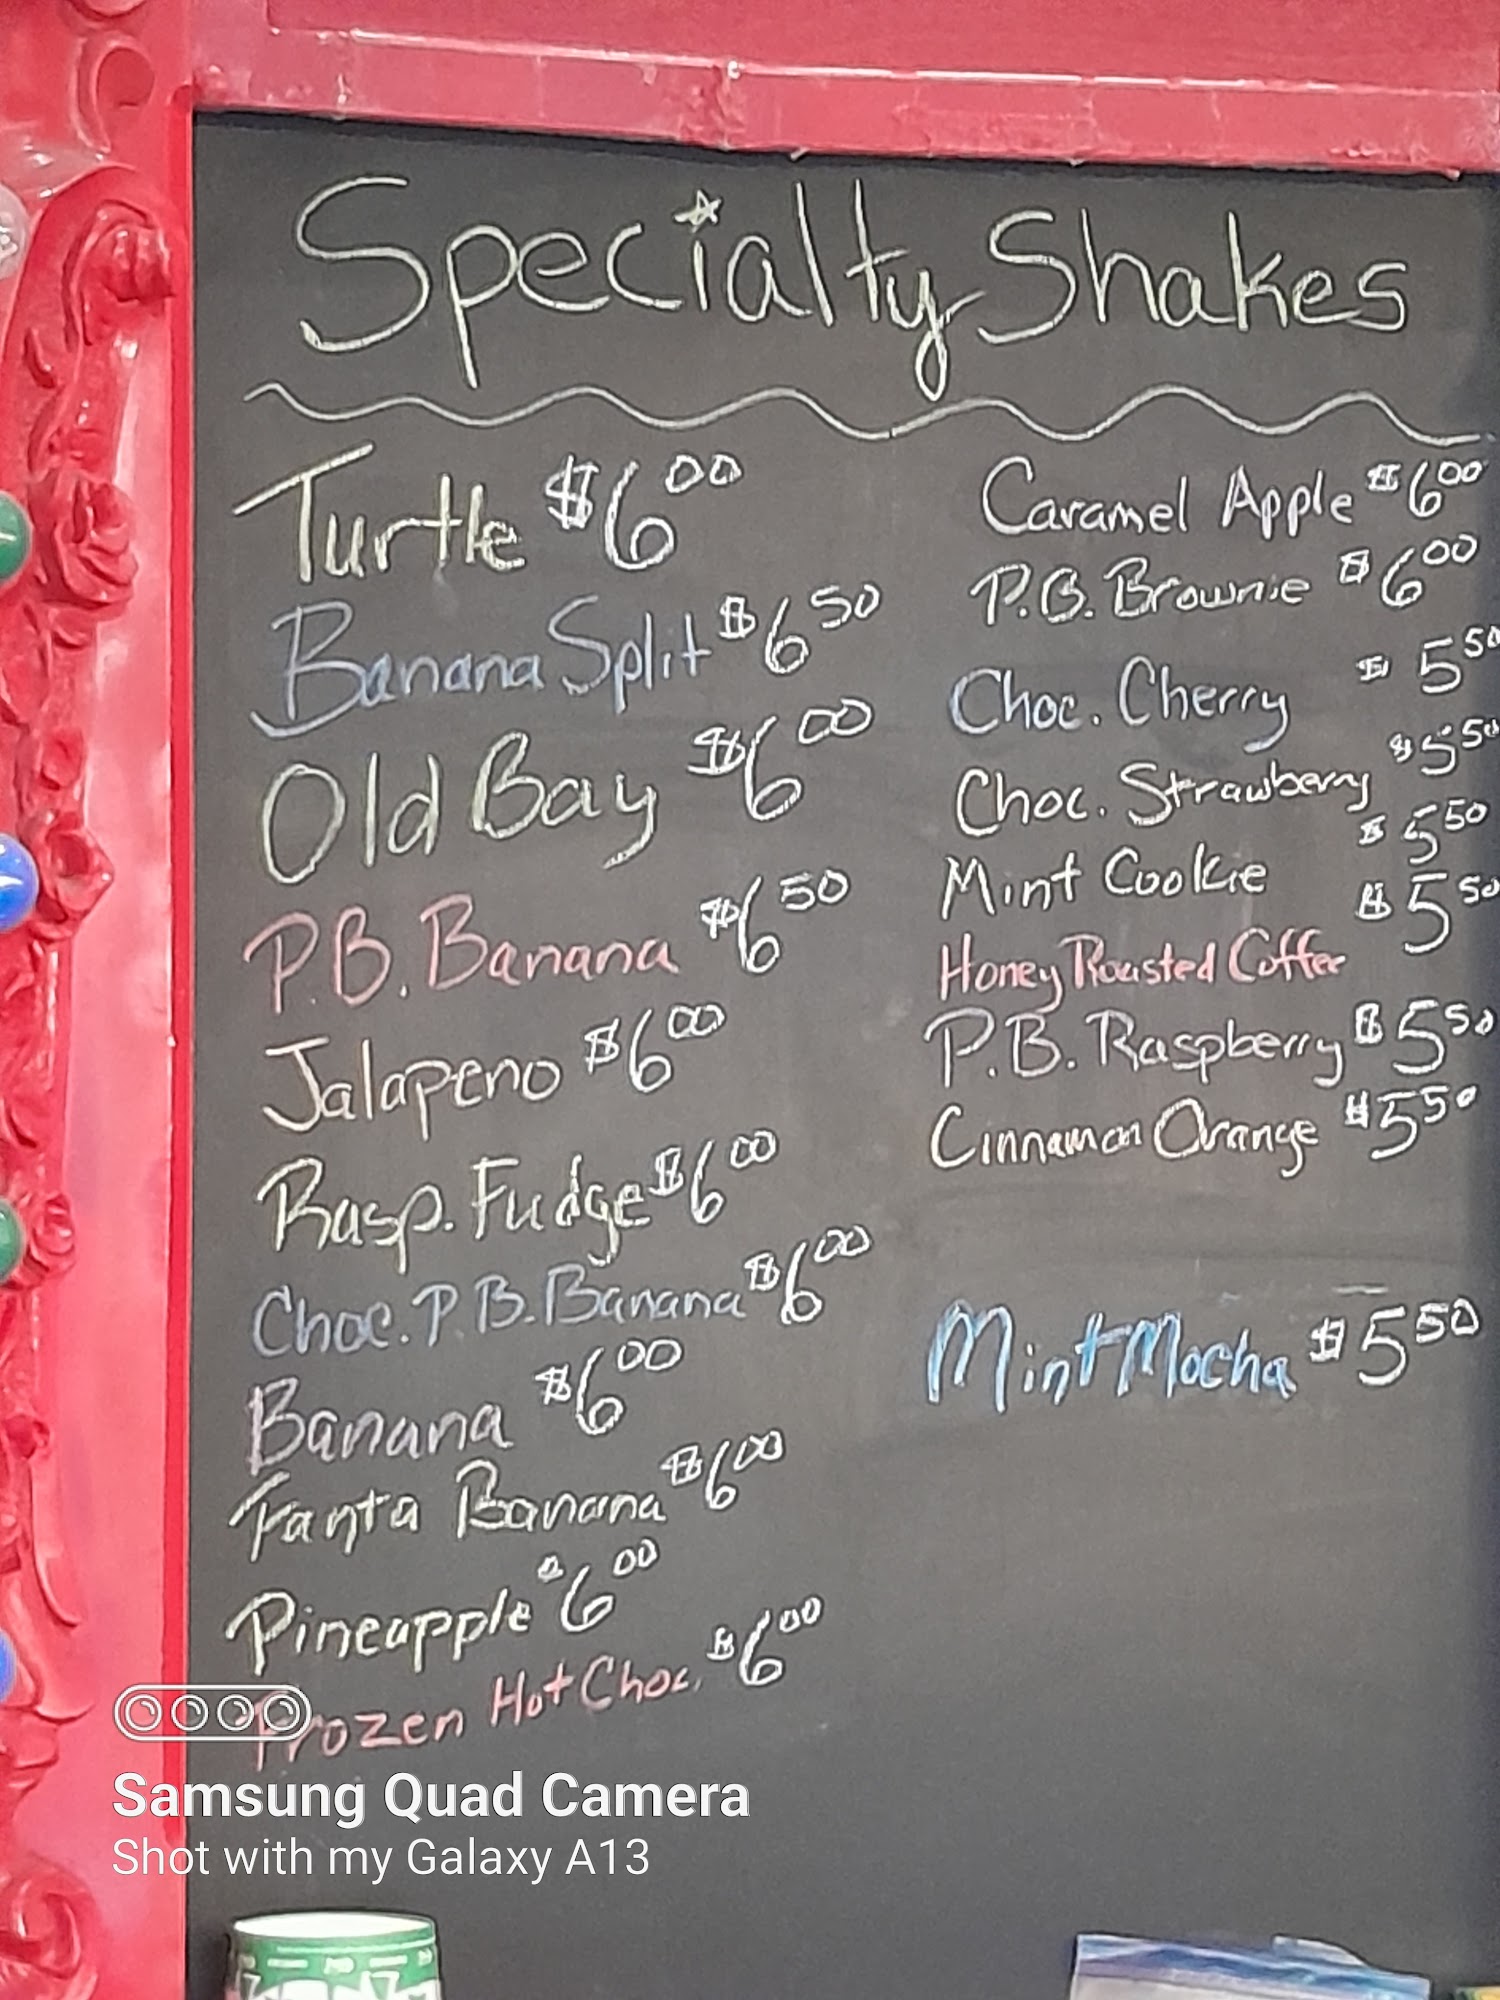 Specialty Shakes
Turtle $6.00
Banana Split $6.50
Old Bay $6.00
P.B. Banana $6.50
Jalapeno $6.00
Rasp. Fudge $6.00
Choc. P.B. Banana $6.00
Banana $6.00
Fanta Banana $6.00
Pineapple $6.00
Frozen Hot Choc. $6.00
Caramel Apple $6.00
P.B. Brownie $6.00
Choc. Cherry $5.50
Choc. Strawberry $5.50
Mint Cookie $5.50
Honey Roasted Coffee $5.50
P.B. Raspberry $5.50
Cinnamon Orange $5.50
Mint Mocha $5.50
Samsung Quad Camera
Shot with my Galaxy A13